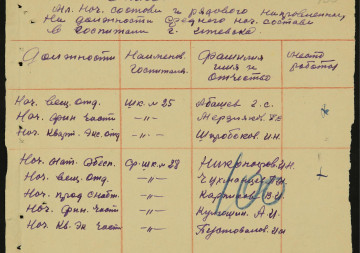 Мл. Нач. состава и рядового направленных
На должности среднего нач. состава
в госпитали г. Ижевска.
Должности Наименов. госпиталя. Фамилия имя и отчество место работы
Нач. вещ. отд. шк. № 25 Абашев Г.С.
Нач. фин части —"— Мерзляков
Нач. Кварт. Экс. отд —"— Широбоков И.Н.
Нач. Мат. Обесп. Ср. шк. № 28 Никроношов И.Н.
Нач. вещ. отд. —"—
Нач. прод снабж. —"— Карпиков В.И.
Нач. Фин. части —"— Кулюшин А.И.
Нач. Кв. Эк часть —"— Пустовалов И.И
100